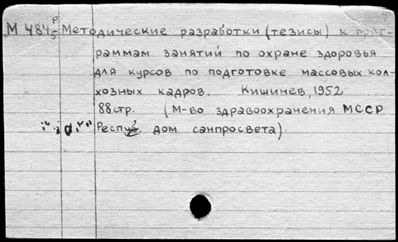 М 484 Р/5 Методические разработки (тезисы) к прог-
раммам занятий по охране здоровья
для курсов по подготовке массовых кол-
хозных кадров. Кишинев, 1952
88стр. (М-во здравоохранения МССР
Респу. дом санпросвета).